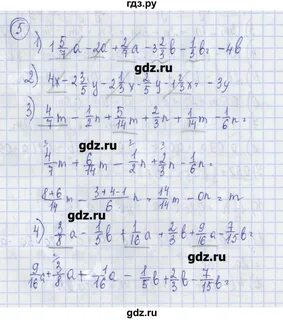 5
1) 1 5/7 a - 2a + 2/7 a - 3 2/3 b - 1/3 b = -4b
2) 4x - 2 3/5 y - 2 1/3 x - 2/5 y - 1 2/3 x = -3y
3) 4/7 m - 1/2 n + 5/14 m + 2/3 n + 1/14 m - 1/6 n
4/7 m + 6/14 m - 1/2 n + 2/3 n - 1/6 n =
8+6/14 m - 3+4-1/6 n = 14/14 m - 0n = m
4) 3/8 a - 1/5 b + 1/16 a + 2/3 b + 9/16 a - 7/15 b
9/16 a + 3/8 a + 1/16 a - 1/5 b + 2/3 b - 7/15 b =
гдз.ру